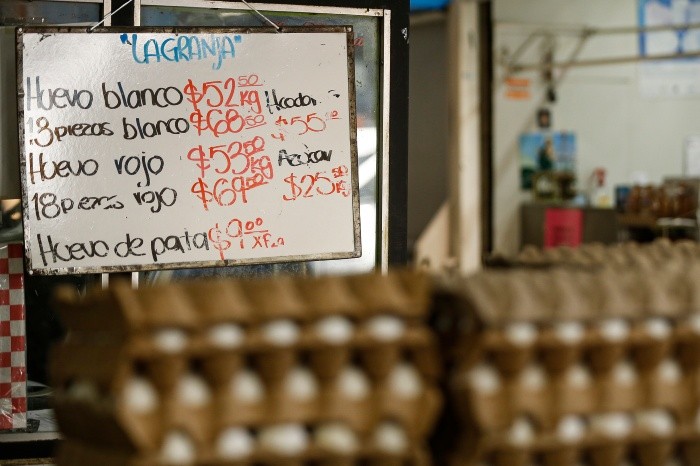 "LAGRANJA"
Huevo blanco $52⁵⁰ kg
piezas blanco $68⁵⁰ $55
Huevo rojo $53⁰⁰ kg Azúcar
18 piezas rojo $69⁰⁰ $25⁵⁰ kg
Huevo de pata $9⁰⁰